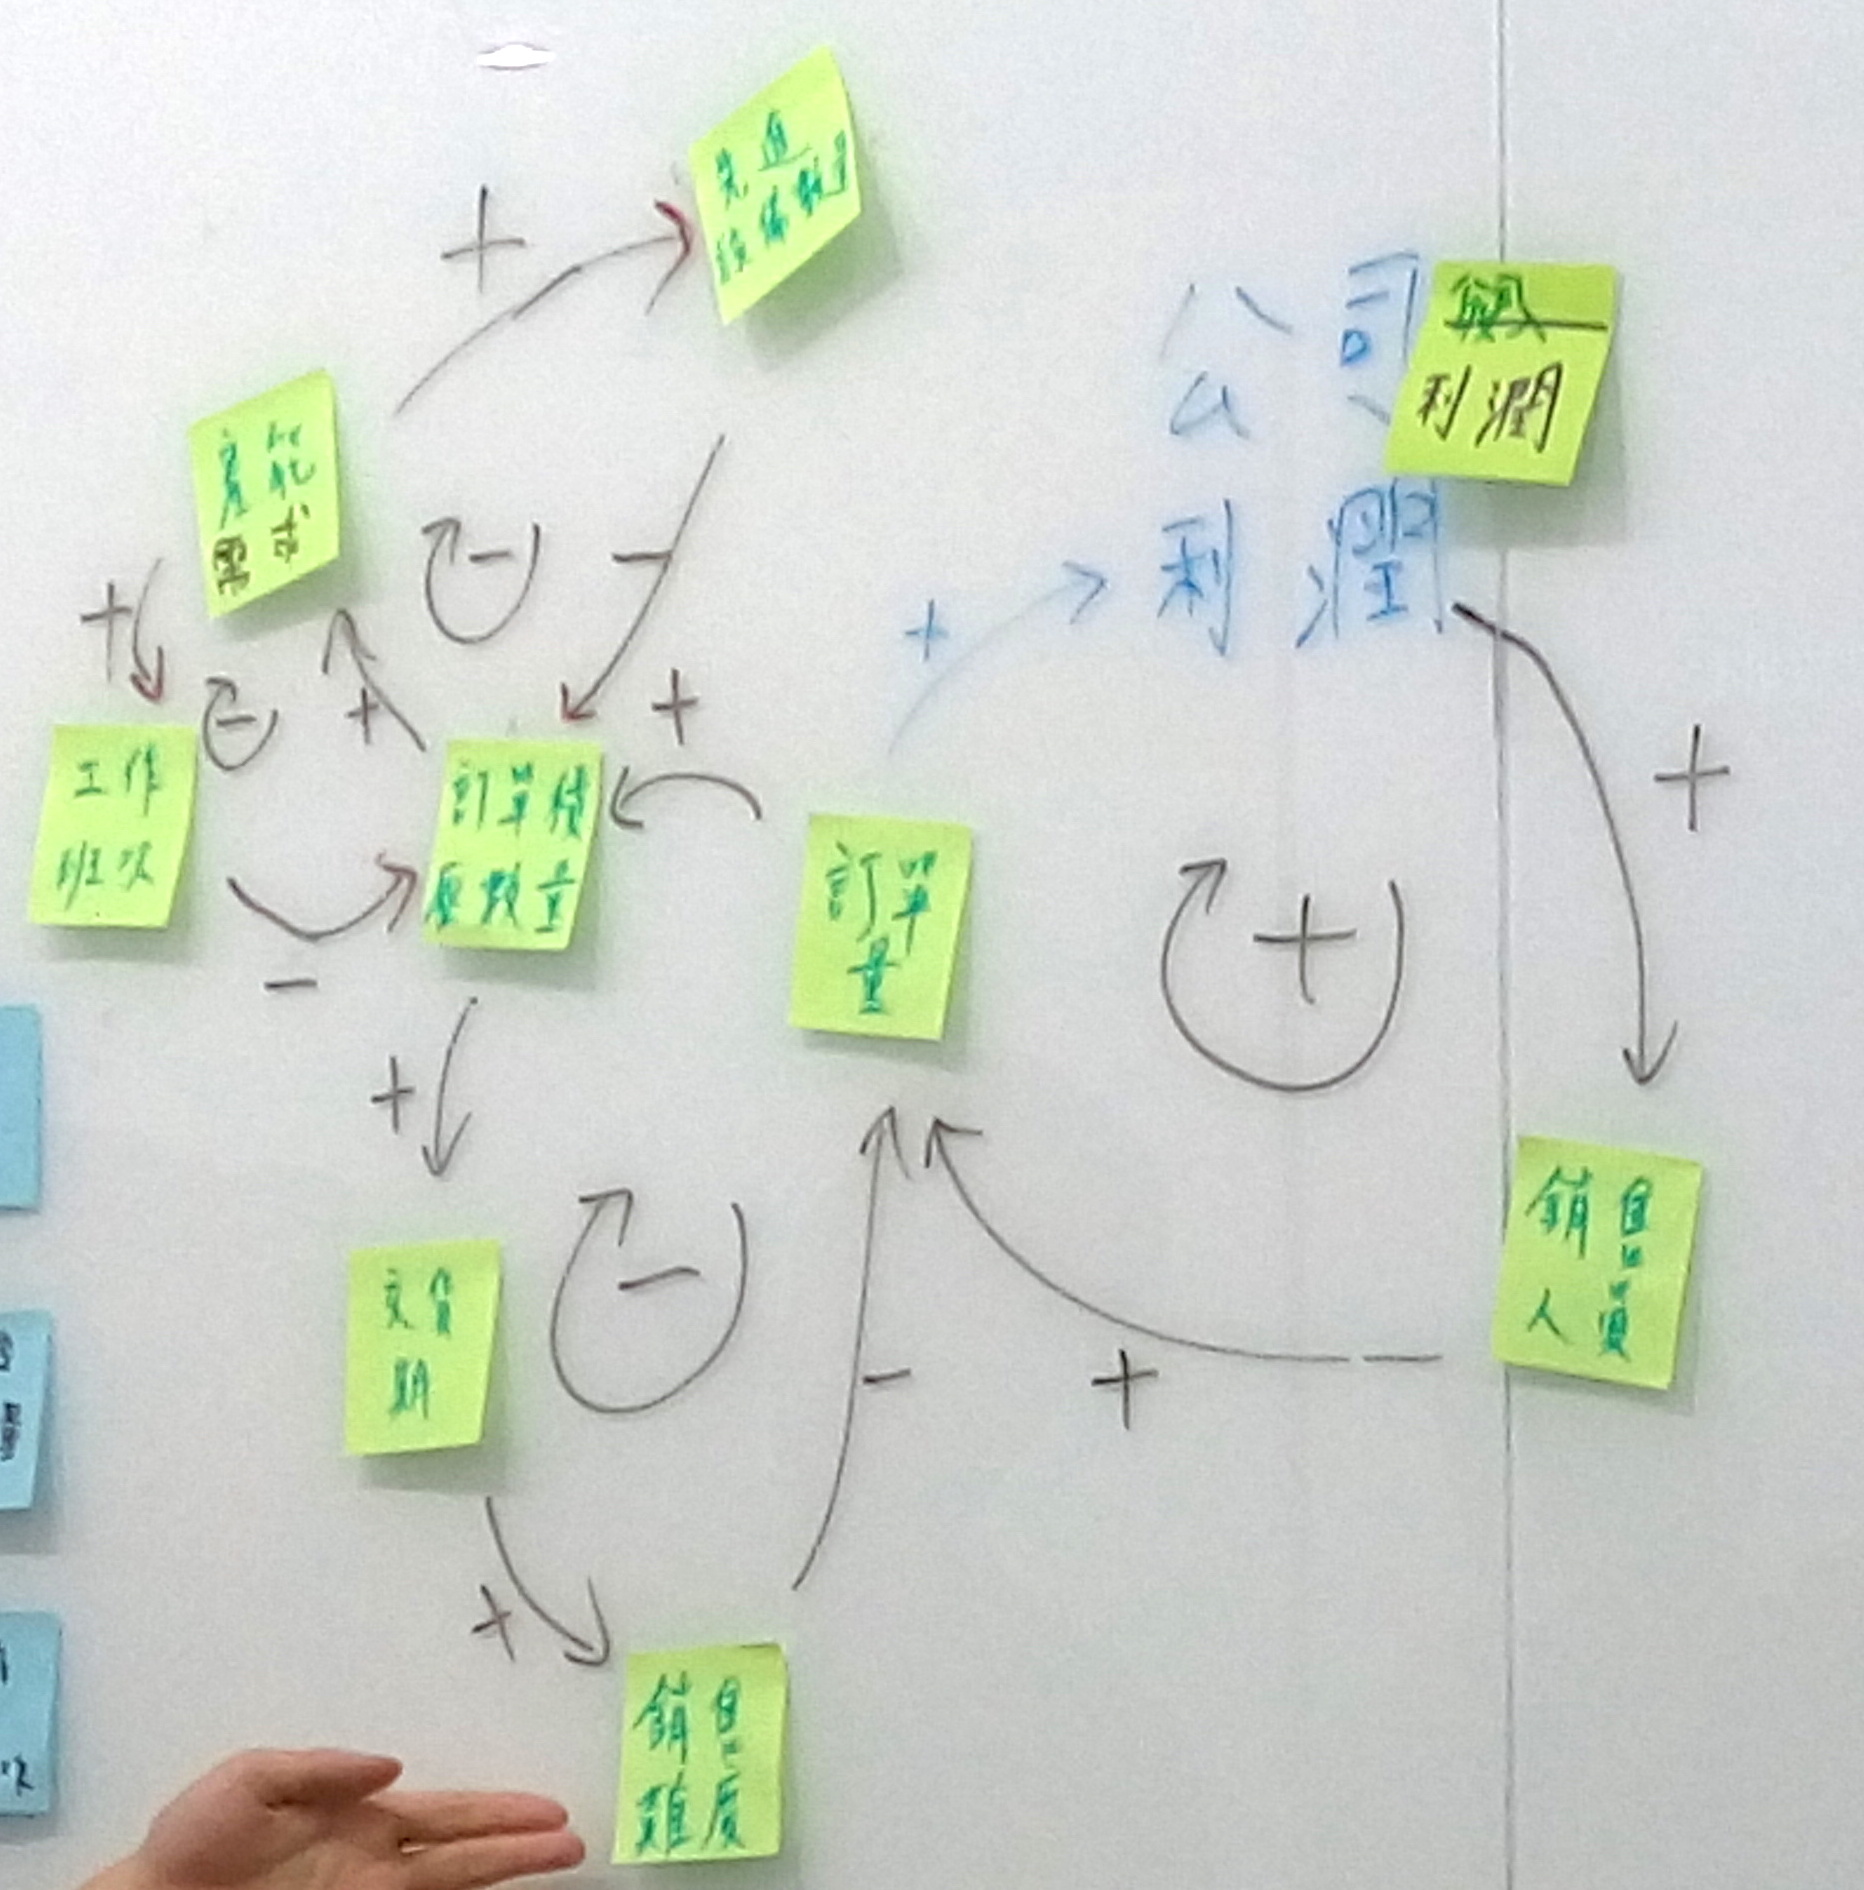 +
先進
設備數量
公司
利潤
利潤
產能
需求
-
-
+
+
+
+
-
+
工作
班次
訂單積
壓數量
訂單
量
+
+
-
+
-
銷售
人員
交貨
期
-
+
+
銷售
難度